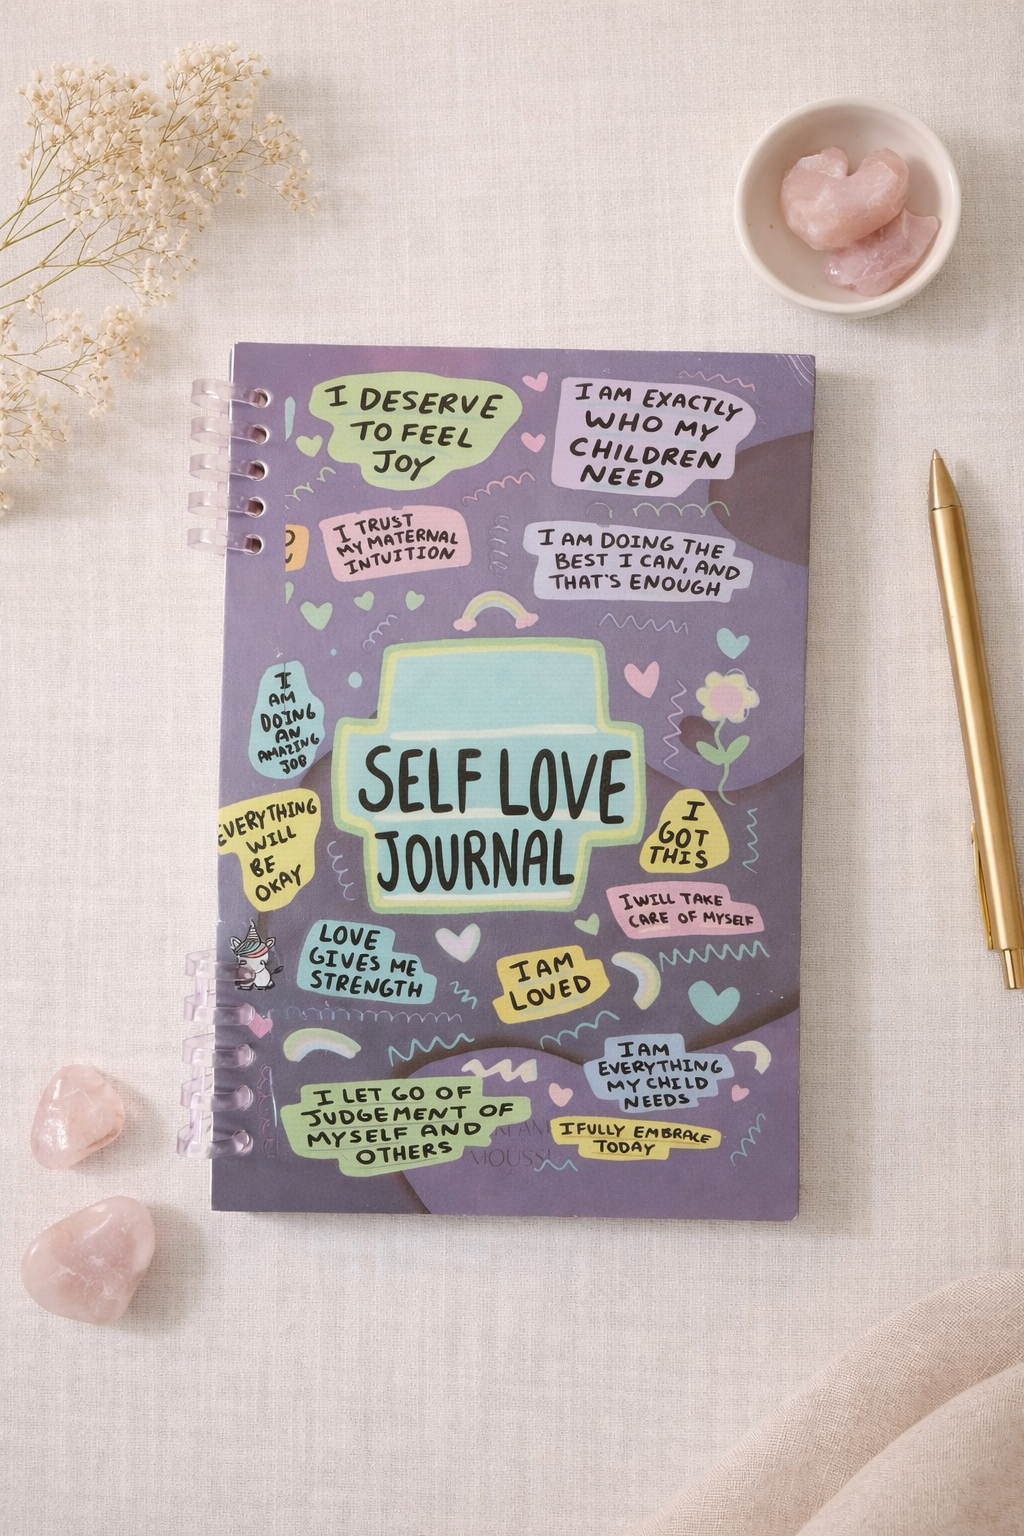 I DESERVE
TO FEEL
JOY
I AM EXACTLY
WHO MY
CHILDREN
NEED
I TRUST
MY MATERNAL
INTUITION
I AM DOING THE
BEST I CAN, AND
THAT'S ENOUGH
I
AM
DOING
AN
AMAZING
JOB
SELF LOVE
JOURNAL
EVERYTHING
WILL
BE
OKAY
I
GOT
THIS
I WILL TAKE
CARE OF MYSELF
LOVE
GIVES ME
STRENGTH
I AM
LOVED
I AM
EVERYTHING
MY CHILD
NEEDS
I LET GO OF
JUDGEMENT OF
MYSELF AND
OTHERS
I FULLY EMBRACE
TODAY